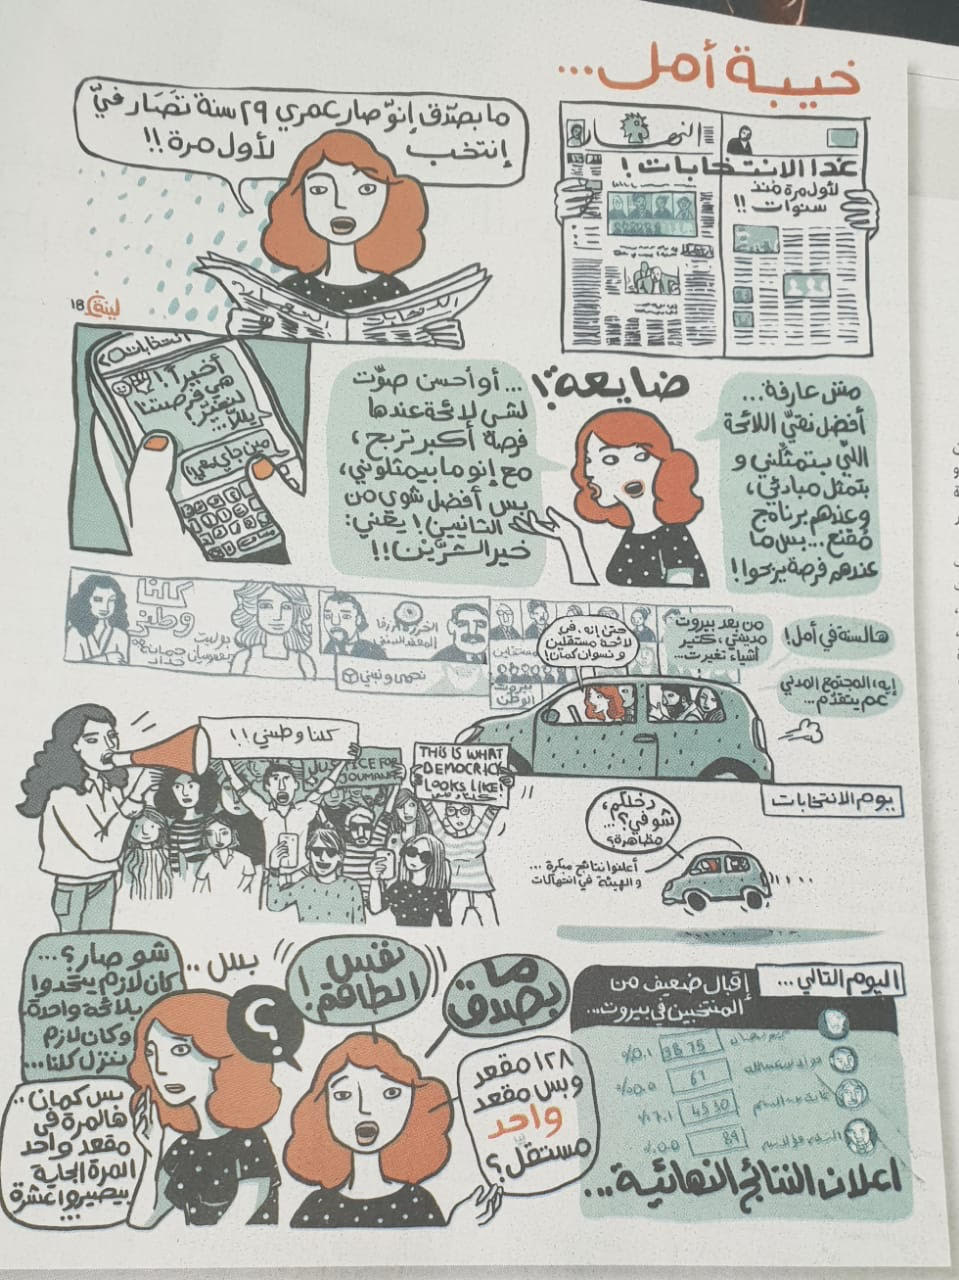 خيبة أمل...
النهار
غدا الانتخابات!
لأول مرة منذ
سنوات!!
ما بصدّق إنّو صار عمري ٢٩ سنة تَصَار فيّ
إنتخب لأول مرة!!
لينة
18
مش عارفة...
أفضل نقّي اللائحة
اللّي بتمثّلني و
بتمثل مبادئي،
وعندهم برنامج
مُقنع... بس ما
عندهم فرصة يربحوا!
ضايعة؟!
...أو أحسن صوّت
لشي لائحة عندها
فرصة أكبر تربح،
مع إنو ما بيمثلوني،
بس أفضل شوي من
الثانيين! يعني:
خير الشرّين!!
انتخابات
أخيراً!
هي فرصتنا
لنغيّر
يللا..
مين جاي معي؟
كلنا
وطني
بوليت
يعقوبيان
جمانة
حداد
نحمي ونبني
بيروت
الوطن
حتى إنه، في
لائحة مستقلين
و نسوان كمان!
من بعد بيروت
مدينتي، كتير
أشياء تغيرت...
هالسنة في أمل!
إيه، المجتمع المدني
عم يتقدّم...
يوم الانتخابات
كلنا وطني!!
JUSTICE FOR
JOUMANA
THIS IS WHAT
DEMOCRACY
LOOKS LIKE!
دخلكم،
شو في؟...
مظاهرة؟
أعلنوا نتائج مبكرة...
والهيئة في انتهاكات
اليوم التالي...
إقبال ضعيف من
المنتخبين في بيروت...
3875
61
4530
89
اعلان النتائج النهائية...
ما
بصدق
نفس
الطاقم!
١٢٨ مقعد
وبس مقعد
واحد
مستقلّ؟
؟
بس..
شو صار؟...
كان لازم يتحدوا
بلائحة واحدة.
وكان لازم
ننزل كلنا...
بس كمان..
هالمرة في
مقعد واحد
المرة الجاية
بيصيروا عشرة